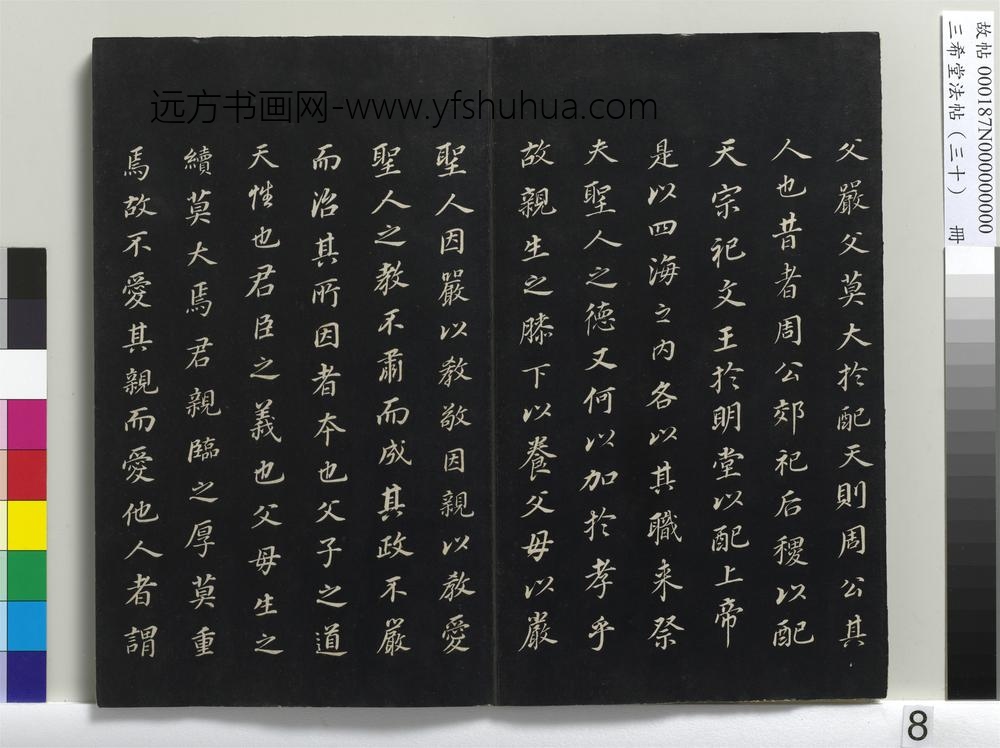 父嚴父莫大於配天則周公其
人也昔者周公郊祀后稷以配
天宗祀文王於明堂以配上帝
是以四海之内各以其職来祭
夫聖人之德又何以加於孝乎
故親生之膝下以養父母以嚴
聖人因嚴以教敬因親以教愛
聖人之教不肅而成其政不嚴
而治其所因者本也父子之道
天性也君臣之義也父母生之
續莫大焉君親臨之厚莫重
焉故不愛其親而愛他人者謂
远方书画网-www.yfshuhua.com
故帖 000187N000000000
三希堂法帖（三十） 冊
8